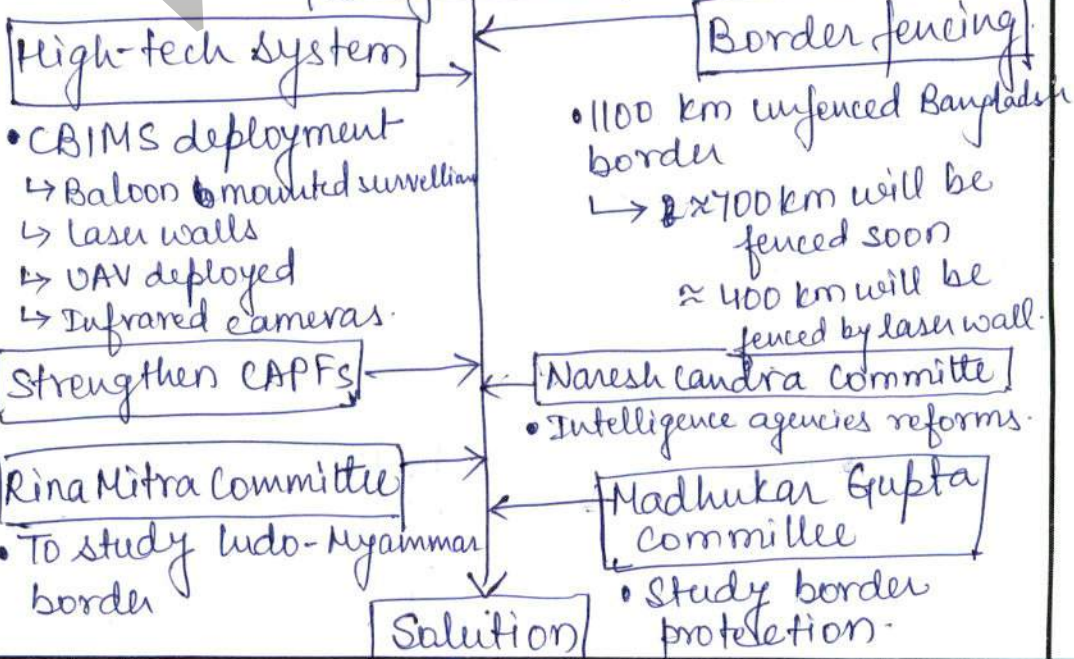 High-tech system
• CBIMS deployment
↳ Baloon mounted survelliance
↳ Laser walls
↳ UAV deployed
↳ Infrared cameras.
Strengthen CAPFs
Rina Mitra Committee
• To study Indo-Myammar
border
Border fencing
• 1100 km unfenced Bangladsh
border
↳ ≈700 km will be
fenced soon
≈ 400 km will be
fenced by laser wall.
Naresh Candra Committe
• Intelligence agencies reforms.
Madhukar Gupta
Committee
• Study border
protection.
Salution